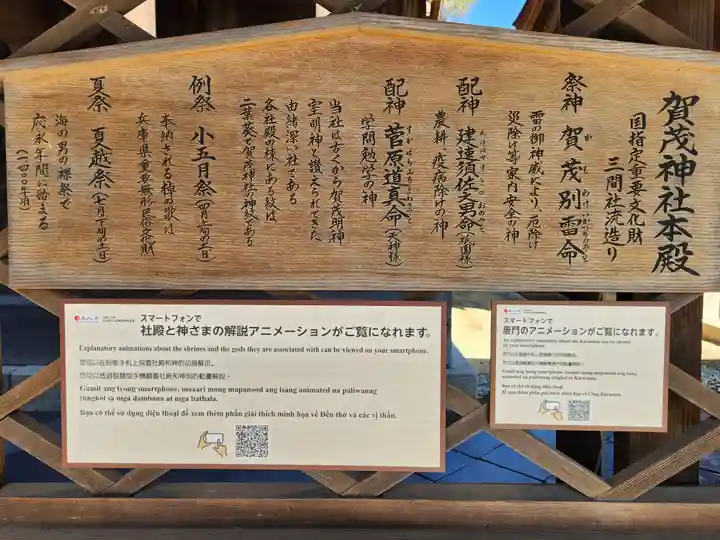 賀茂神社本殿
国指定重要文化財
三間社流造り
祭神 賀茂別雷命
雷の御神威により、厄除け
災除け等家内安全の神
配神 建速須佐之男命(祇園様)
農耕、疫病除けの神
配神 菅原道真命(天神様)
学問勉学の神
当社は古くから賀茂明神
室明神と讃えられてきた
由緒深い社である
各社殿の様にある紋は
二葉葵で賀茂神社の神紋である
例祭 小五月祭
奉納される棹の歌は
兵庫県重要無形民俗文化財
夏祭 夏越祭
海の男の裸祭で
応永年間に始まる
(一四〇〇年頃)
スマートフォンで
社殿と神さまの解説アニメーションがご覧になれます。
Explanatory animations about the shrines and the gods they are associated with can be viewed on your smartphone.
您可以在智能手机上观看社殿和神的动画解说。
您可以透過智慧型手機觀看社殿和神的動畫解說。
Gamit ang iyong smartphone, maaari mong mapanood ang isang animated na paliwanag
tungkol sa mga dambana at mga bathala.
Bạn có thể sử dụng điện thoại để xem thêm phần giải thích minh họa về Đền thờ và các vị thần.
スマートフォンで
唐門のアニメーションがご覧になれます。
An explanatory animation about the Karamon can be viewed
on your smartphone.
Gamit ang iyong smartphone, maaari mong mapanood ang isang
animated na paliwanag tungkol sa Karamon.
Bạn có thể sử dụng điện thoại
để xem thêm phần giải thích minh họa về Cổng Karamon.